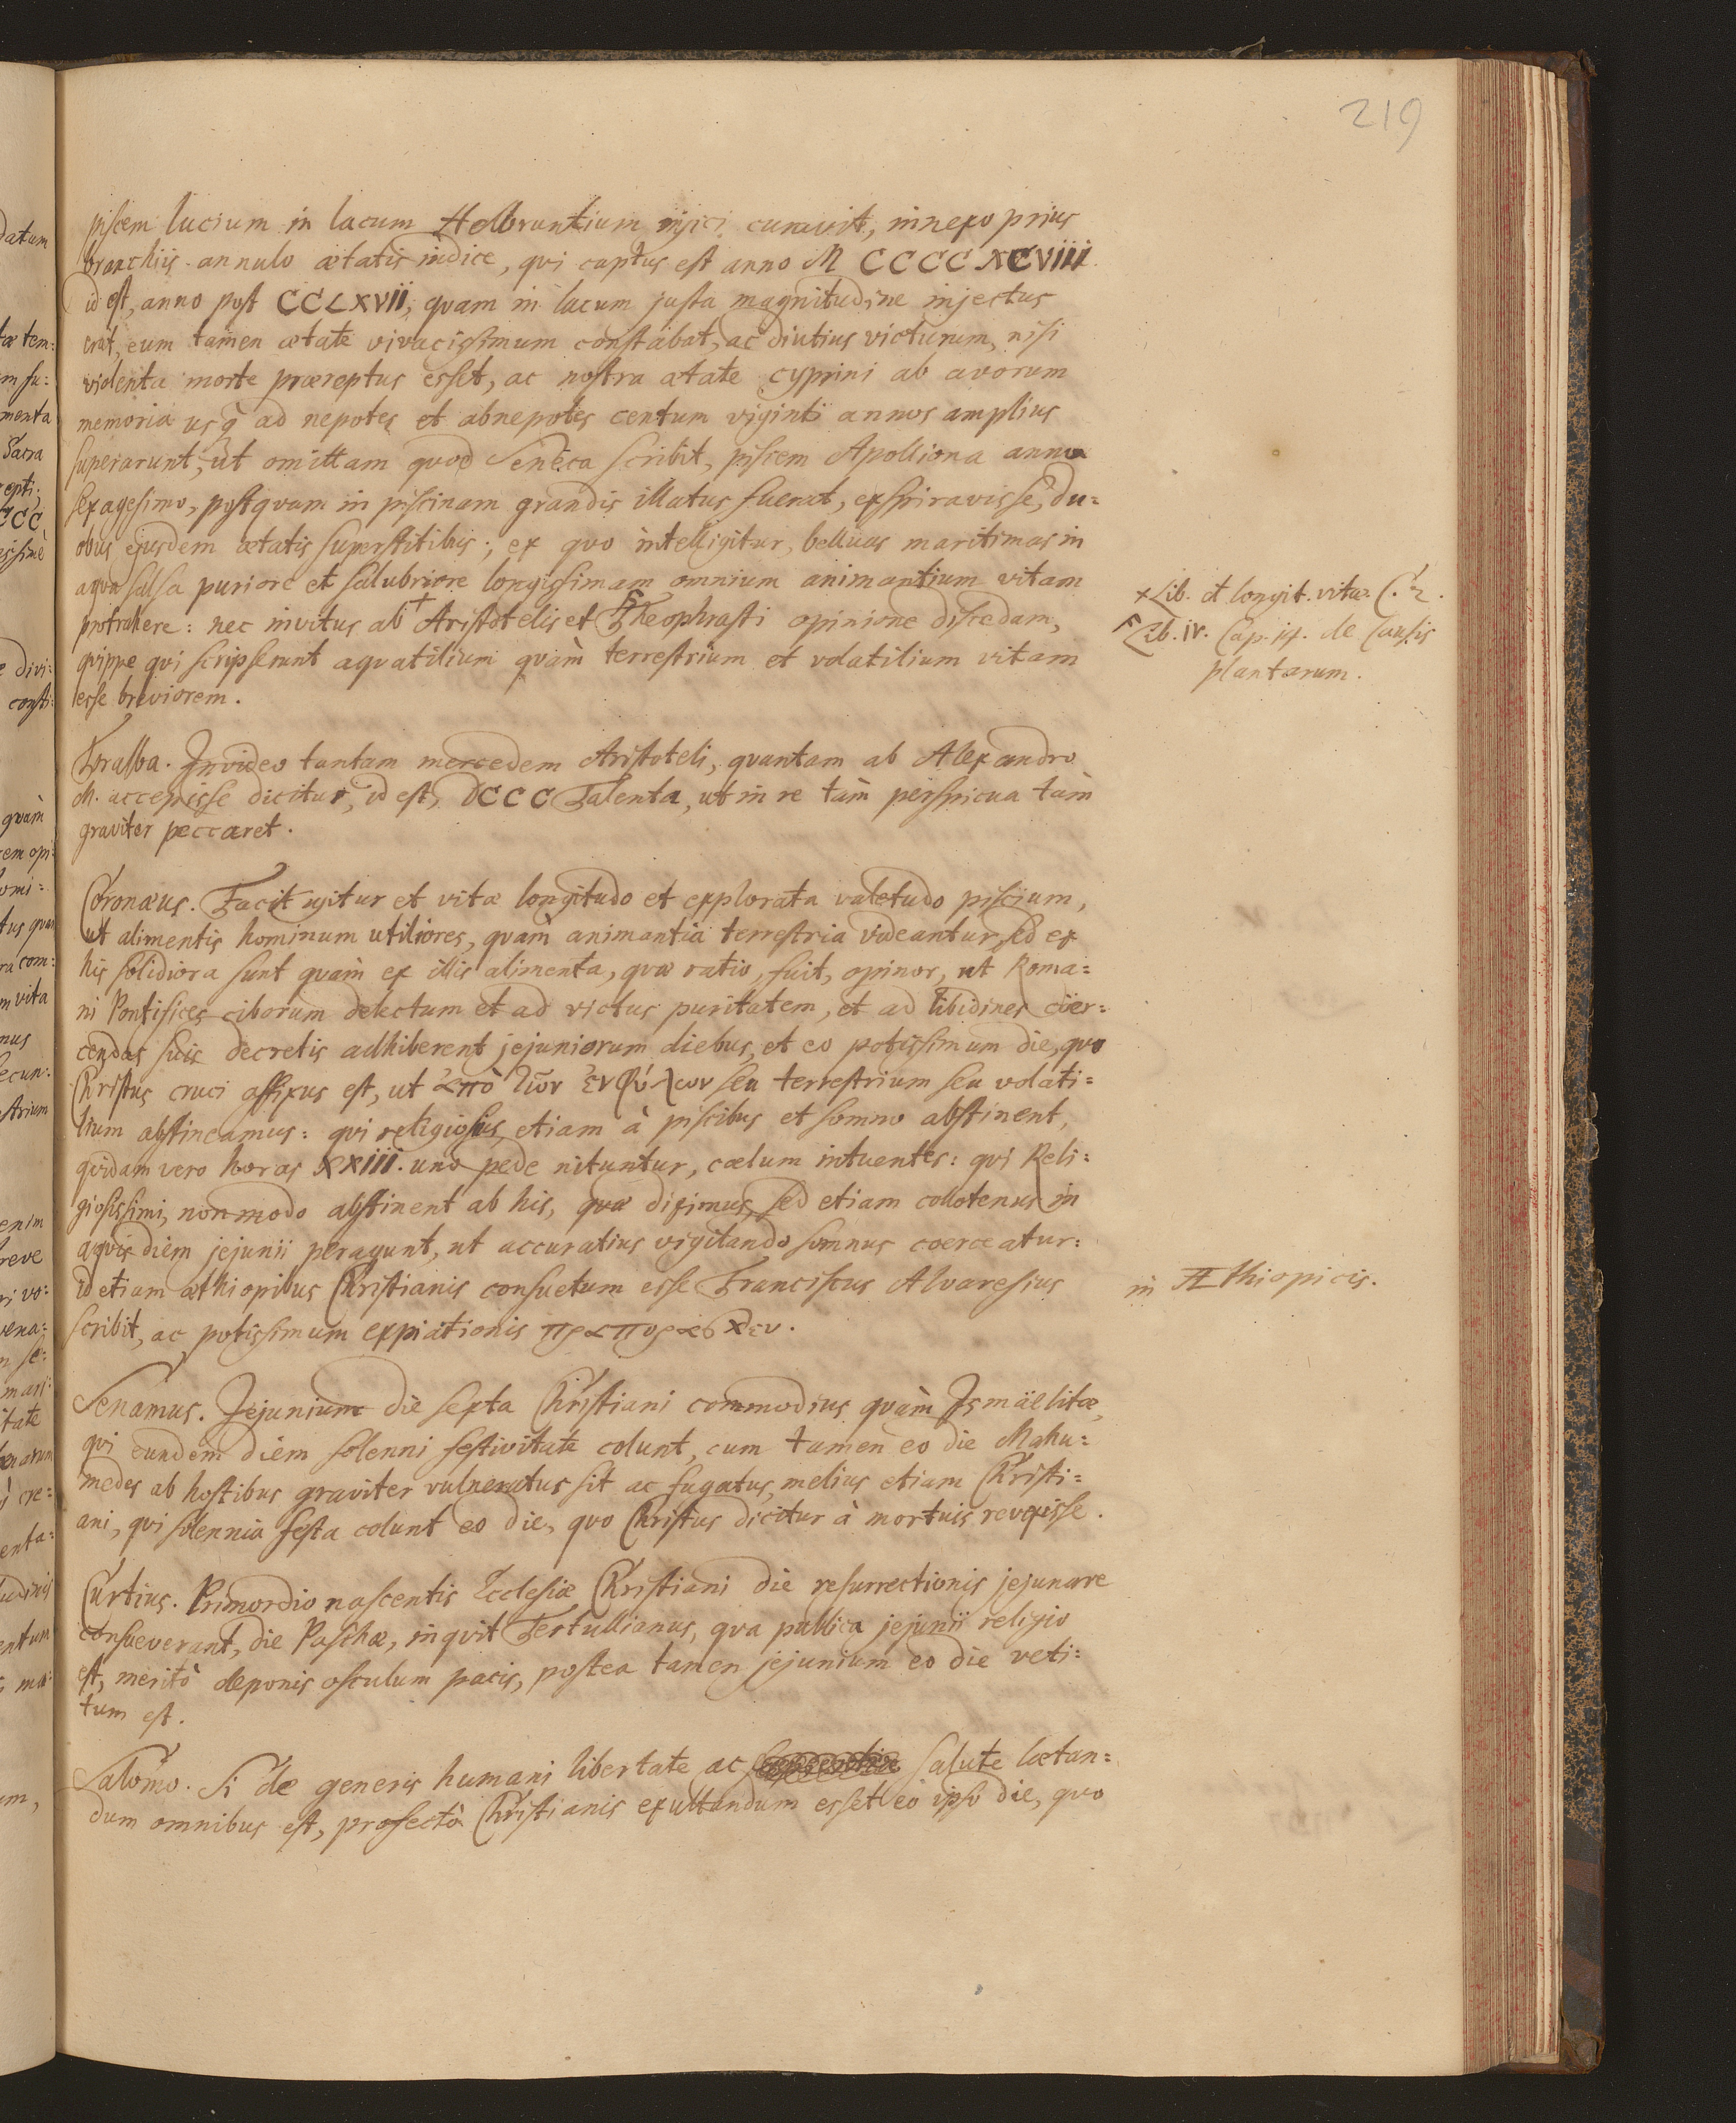 219
piscem lucium in lacum Helbruntium injici curavit, innexo prius
branchiis annulo ætatis indice, qvi captus est anno M CCCC XCVIII
id est, anno post CCLXVII, qvam in lacum justa magnitudine injectus
erat, eum tamen ætate vivacissimum constabat, ac diutius victurum, nisi
violenta morte præreptus esset, ac nostra ætate cyprini ab avorum
memoria usq ad nepotes et abnepotes centum viginti annos amplius
superarunt; ut omittam qvod Seneca scribit, piscem Apolliona anno
sexagesimo, postqvam in piscinam grandis illatus fuerat, exspiravisse, du=
obus ejusdem ætatis superstitibus; ex qvo intelligitur, belluas maritimas in
aqva salsa puriore et salubriore longissimam omnium animantium vitam
protrahere: nec invitus ab + Aristotelis et Theophrasti opinione discedam,
qvippe qvi scripserunt aqvatilium qvàm terrestrium et volatilium vitam
esse breviorem.
+ Lib. et longit. vitæ. C. 2.
Lib. IV. Cap. 14. de Causis
plantarum.
Tralba. Invideo tantam mercedem Aristoteli, qvantam ab Alexandro
M. accepisse dicitur, id est, DCCC Talenta, ut in re tàm perspicua tàm
graviter peccaret.
Coronæus. Facit igitur et vitæ longitudo et explorata valetudo piscium,
ut alimentis hominum utiliores, qvàm animantia terrestria videantur, sed ex
his solidiora sunt qvàm ex illis alimenta, qvæ ratio, fuit, opinor, ut Roma=
ni Pontifices ciborum delectum et ad victus puritatem, et ad libidines cöer=
cendas suis decretis adhiberent jejuniorum diebus, et eo potissimum die, qvo
Christus cruci affixus est, ut ἀπὸ τῶν ἐμψύχων seu terrestrium seu volati=
lium abstineamus: qvi religiosius, etiam à piscibus et somno abstinent,
qvidam vero horas XXIIII. uno pede nituntur, cælum intuentes: qvi Reli=
giosissimi, non modo abstinent ab his, qvæ diximus, sed etiam collotenus in
aqvis diem jejunii peragunt, ut accuratius vigilando somnus coerceatur:
id etiam æthiopibus Christianis consuetum esse Franciscus Alvaresius
in Æthiopicis.
scribit, ac potissimum expiationis
Senamus. Jejunium die sexta Christiani commodius qvàm Ismäelitæ,
qvi eundem diem solenni festivitate colunt, cum tamen eo die Mahu=
medes ab hostibus graviter vulneratus sit ac fugatus, melius etiam Christi=
ani, qvi solennia festa colunt eo die, qvo Christus dicitur à mortuis revixisse.
Curtius. Primordio nascentis Ecclesiæ Christiani die resurrectionis jejunare
consueverant, die Paschæ, inqvit Tertullianus, qva publica jejunii religio
est, meritò deponis osculum pacis, postea tamen jejunium eo die veti=
tum est.
Salomo. Si de generis humani libertate ac salute lætan=
dum omnibus est, profectò Christianis exultandum esset eo ipso die, qvo